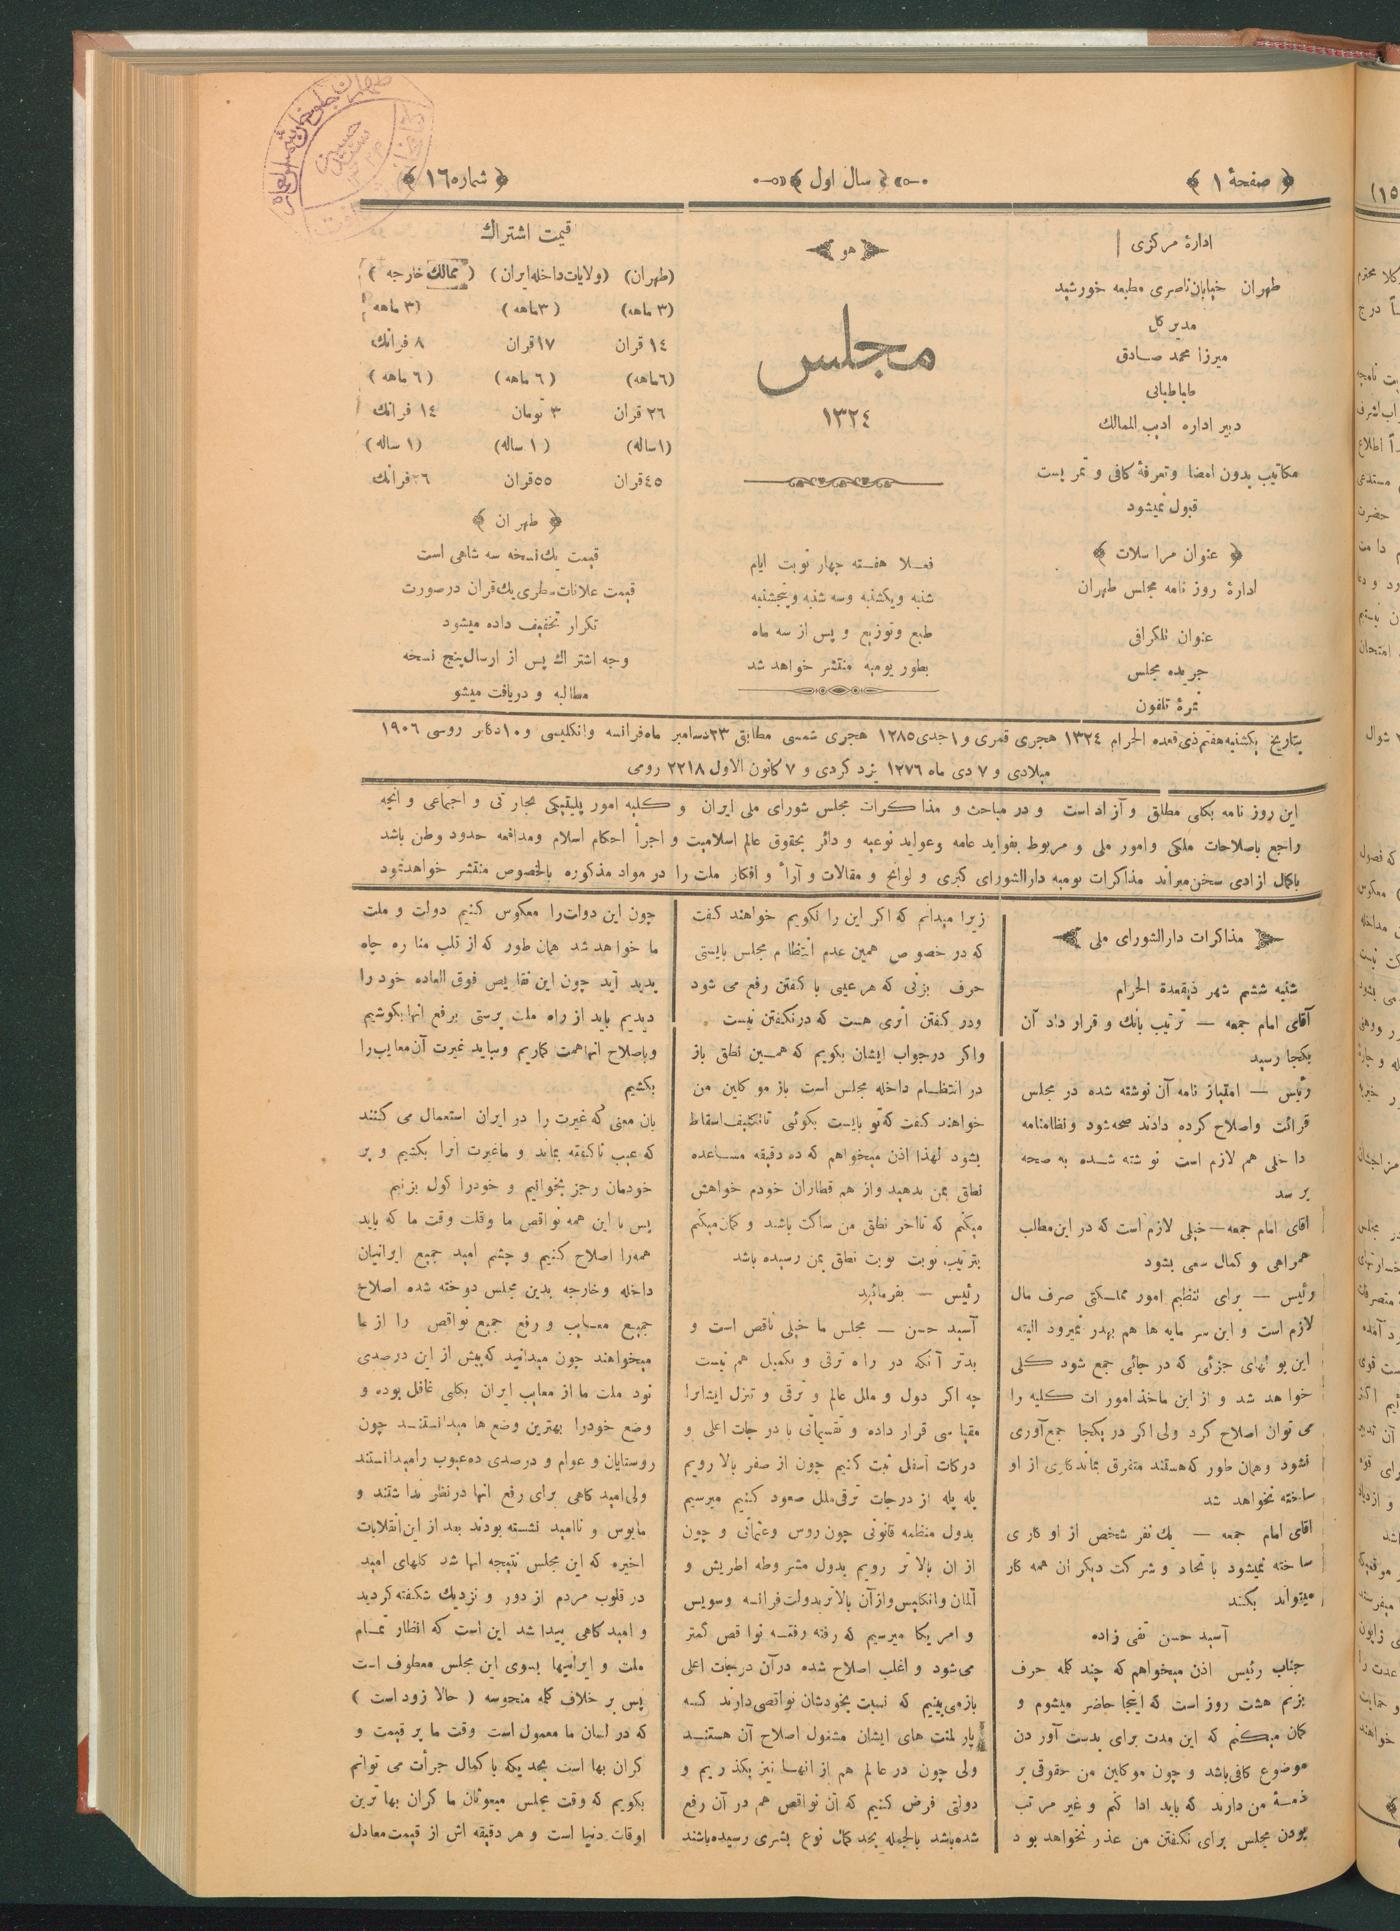 ﴿ صفحهٔ ۱ ﴾
﴿ سال اول ﴾
﴿ شماره ۱۶ ﴾
ادارهٔ مرکزی
طهران خیابان ناصری مطبعه خورشید
مدیر کل
میرزا محمد صادق
طباطبائی
دبیر اداره ادیب الممالک
مکاتیب بدون امضا و تعرفهٔ کافی و تمر پست
قبول نمیشود
﴿ عنوان مراسلات ﴾
ادارهٔ روز نامه مجلس طهران
عنوان تلگرافی
جریده مجلس
نمرهٔ تلفون
هو
مجلس
۱۳۲٤
فعلا هفته چهار نوبت ایام
شنبه ویکشنبه وسه شنبه وپنجشنبه
طبع وتوزیع و پس از سه ماه
بطور یومیه منتشر خواهد شد
قیمت اشتراک
(طهران) (ولایات داخله ایران) (ممالک خارجه)
(۳ ماهه) (۳ماهه) (۳ ماهه)
۱٤ قران ۱۷ قران ۸ فرانک
(٦ماهه) (٦ ماهه) (٦ ماهه)
۲٦ قران ۳ تومان ۱٤ فرانک
(۱ساله) (۱ ساله) (۱ ساله)
٤۵ قران ۵۵ قران ۲٦ فرانک
﴿ طهران ﴾
قیمت یک نسخه سه شاهی است
قیمت علانات سطری یک قران درصورت
تکرار تخفیف داده میشود
وجه اشتراک پس از ارسال پنج نسخه
مطالبه و دریافت میشو
بتاریخ یکشنبه هفتم ذی قعده الحرام ۱۳۲٤ هجری قمری و ۱ جدی ۱۲۸۵ هجری شمسی مطابق ۲۳ دسامبر ماه فرانسه وانگلیسی و ۱۰ دکابر روسی ۱۹۰٦
میلادی و ۷ دی ماه ۱۲۷٦ یزد کردی و ۷ کانون الاول ۲۲۱۸ رومی
این روز نامه بکلی مطلق و آزاد است و در مباحث و مذاکرات مجلس شورای ملی ایران و کلیه امور پلیتیکی تجارتی و اجتماعی و آنچه
راجع باصلاحات ملکی وامور ملی و مربوط بفواید عامه وعواید نوعیه و دائر بحقوق عالم اسلامیت و اجرأ احکام اسلام ومدافعه حدود وطن باشد
باکمال ازادی سخن میراند مذاکرات یومیه دارالشورای کبری و لوایح و مقالات و آرأ و افکار ملت را در مواد مذکوره بالخصوص منتشر خواهدنمود
مذاکرات دارالشورای ملی
شنبه ششم شهر ذیقعدة الحرام
آقای امام جمعه — ترتیب بانک و قرار داد آن
بکجا رسید
رئیس — امتیاز نامه آن نوشته شده در مجلس
قرائت واصلاح کرده دادند صحه شود ونظامنامه
داخلی هم لازم است نوشته شده به صحه
برسد
آقای امام جمعه — خیلی لازم است که در این مطالب
همراهی و کمال سعی بشود
رئیس — برای تنظیم امور مملکتی صرف مال
لازم است و این سر مایه ها هم بهدر نمیرود البته
این پولهای جزئی که در جائی جمع شود کلی
خواهد شد و از این ماخذ امورات کلیه را
می توان اصلاح کرد ولی اکر در یکجا جمع آوری
نشود وهمان طور که هستند متفرق بماند کاری از او
ساخته نخواهد شد
آقای امام جمعه — یک نفر شخص از او کاری
ساخته نمیشود با تحاد و شرکت دیکران همه کار
میتواند بکند
آسید حسن تقی زاده
جناب رئیس اذن میخواهم که چند کله حرف
بزنم هشت روز است که اینجا حاضر میشوم و
کمان میکنم که این مدت برای بدست آور دن
موضوع کافی باشد و چون موکلین من حقوقی بر
ذمهٔ من دارند که باید ادا کنم و غیر مرتب
بودن مجلس برای نکفتن من عذر نخواهد بود
زیرا میدانم که اکر این را نکویم خواهند کفت
که در خصوص همین عدم انتظام مجلس بایستی
حرف بزنی که هر عیبی با کفتن رفع می شود
ودر کفتن اثری هست که درنکفتن نیست
واکر درجواب ایشان بکویم که همین نطق باز
در انتظام داخله مجلس است باز موکلین من
خواهند کفت که تو بایست بکوئی تا تکلیف اسقاط
بشود لهذا اذن میخواهم که ده دقیقه مساعده
نطق بمن بدهید واز هم قطاران خودم خواهش
میکنم که تا آخر نطق من ساکت باشند و کمان میکنم
بترتیب نوبت نوبت نطق بمن رسیده باشد
رئیس — بفرمائید
آسید حسن — مجلس ما خیلی ناقص است و
بدتر آنکه در راه ترقی و تکمیل هم نیست
چه اکر دول و ملل عالم و ترقی و تنزل ایشانرا
مقیاسی قرار داده و تقسیماتی با درجات اعلی و
درکات اسفل ثبت کنیم چون از صفر بالا رویم
پله پله از درجات ترقی ملل صعود کنیم میرسیم
بدول منظمه قانونی چون روس وعثمانی و چون
از ان بالاتر رویم بدول مشروطه اطریش و
آلمان وانکلیس وازآن بالاتر بدولت فرانسه وسویس
و امریکا میرسیم که رفته رفته نواقص کمتر
می شود و اغلب اصلاح شده درآن درجات اعلی
بازمی بینیم که نسبت بخودشان نواقصی دارند که
پارلمنت های ایشان مشغول اصلاح آن هستند
ولی چون در عالم هم از انها نیز بکذریم و
دولتی فرض کنیم که آن نواقص هم در آن رفع
شده باشد بالجمله بحد کمال نوع بشری رسیده باشند
چون این دوات را معکوس کنیم دولت و ملت
ما خواهد شد همان طور که از قلب مناره چاه
پدید آید چون این نقایص فوق العاده خود را
دیدیم باید از راه ملت پرستی برفع انها بکوشیم
وباصلاح انها همت کماریم ونباید غیرت آن معایب را
بکشیم
بان معنی که غیرت را در ایران استعمال می کنند
که عیب ناکفته بماند و ماغیرت آنرا بکشیم و بر
خودمان رجز بخوانیم و خودرا کول بزنیم
پس با این همه نواقص ما وقلت وقت ما که باید
همه را اصلاح کنیم و چشم امید جمیع ایرانیان
داخله وخارجه بدین مجلس دوخته شده اصلاح
جمیع معایب و رفع جمیع نواقص را از ما
میخواهند چون میدانید که پیش از این درصدی
نود ملت ما از معایب ایران بکلی غافل بوده و
وضع خودرا بهترین وضع ها میدانستند چون
روستایان و عوام و درصدی ده عیوب را میدانستند
ولی امید کاهی برای رفع انها درنظر نداشتند و
مایوس و ناامید نشسته بودند بعد از این انقلابات
اخیره که این مجلس نتیجه انها شد کلهای امید
در قلوب مردم از دور و نزدیک شکفته کردید
و امید کاهی پیدا شد این است که انظار تمام
ملت و ایرانیها بسوی این مجلس معطوف است
پس بر خلاف کله منحوسه ( حالا زود است )
که در لسان ما معمول است وقت ما پر قیمت و
کران بها است بحدیکه با کمال جرأت می توانم
بکویم که وقت مجلس مبعوثان ما کران بها ترین
اوقات دنیا است و هر دقیقه اش از قیمت معادل